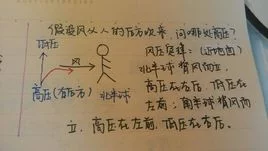 假设风从人的后方吹来,问哪处高压?
低压
风
高压(右后方)
北半球
风压定律:(近地面)
北半球背风而立,
高压在右后,低压在
左前;南半球背风而
立,高压在左后,低压在右前。